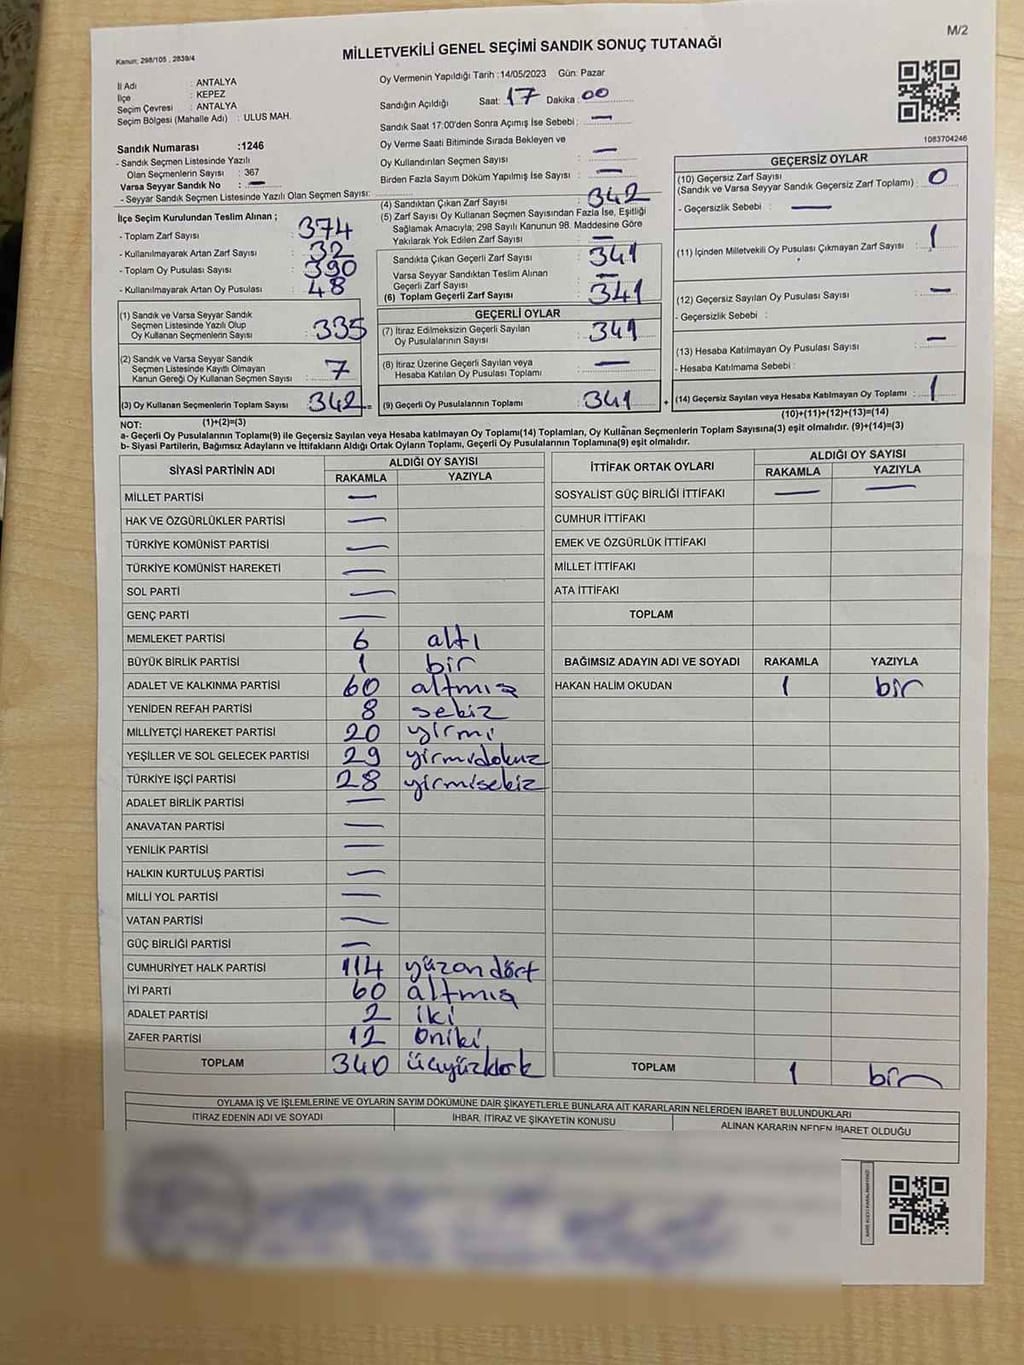 M/2
Kanun: 298/105 , 2839/4
MİLLETVEKİLİ GENEL SEÇİMİ SANDIK SONUÇ TUTANAĞI
İl Adı : ANTALYA
İlçe : KEPEZ
Seçim Çevresi : ANTALYA
Seçim Bölgesi (Mahalle Adı) : ULUS MAH.
Sandık Numarası :1246
- Sandık Seçmen Listesinde Yazılı
Olan Seçmenlerin Sayısı : 367
Varsa Seyyar Sandık No : —
- Seyyar Sandık Seçmen Listesinde Yazılı Olan Seçmen Sayısı:
Oy Vermenin Yapıldığı Tarih :14/05/2023 Gün: Pazar
Sandığın Açıldığı Saat: 17 Dakika : 00
Sandık Saat 17:00'den Sonra Açımış İse Sebebi : —
Oy Verme Saati Bitiminde Sırada Bekleyen ve
Oy Kullandırılan Seçmen Sayısı : —
Birden Fazla Sayım Döküm Yapılmış İse Sayısı : —
1083704246
İlçe Seçim Kurulundan Teslim Alınan ;
- Toplam Zarf Sayısı : 374
- Kullanılmayarak Artan Zarf Sayısı : 32
- Toplam Oy Pusulası Sayısı : 390
- Kullanılmayarak Artan Oy Pusulası : 48
(1) Sandık ve Varsa Seyyar Sandık
Seçmen Listesinde Yazılı Olup
Oy Kullanan Seçmenlerin Sayısı : 335
(2) Sandık ve Varsa Seyyar Sandık
Seçmen Listesinde Kayıtlı Olmayan
Kanun Gereği Oy Kullanan Seçmen Sayısı : 7
(3) Oy Kullanan Seçmenlerin Toplam Sayısı : 342 =
(4) Sandıktan Çıkan Zarf Sayısı : 342
(5) Zarf Sayısı Oy Kullanan Seçmen Sayısından Fazla İse, Eşitliği
Sağlamak Amacıyla; 298 Sayılı Kanunun 98. Maddesine Göre
Yakılarak Yok Edilen Zarf Sayısı : —
Sandıkta Çıkan Geçerli Zarf Sayısı : 341
Varsa Seyyar Sandıktan Teslim Alınan
Geçerli Zarf Sayısı : —
(6) Toplam Geçerli Zarf Sayısı : 341
GEÇERLİ OYLAR
(7) İtiraz Edilmeksizin Geçerli Sayılan
Oy Pusulalarının Sayısı : 341
(8) İtiraz Üzerine Geçerli Sayılan veya
Hesaba Katılan Oy Pusulası Toplamı : —
(9) Geçerli Oy Pusulalarının Toplamı : 341 +
GEÇERSİZ OYLAR
(10) Geçersiz Zarf Sayısı
(Sandık ve Varsa Seyyar Sandık Geçersiz Zarf Toplamı) : 0
- Geçersizlik Sebebi : —
(11) İçinden Milletvekili Oy Pusulası Çıkmayan Zarf Sayısı : 1
(12) Geçersiz Sayılan Oy Pusulası Sayısı : —
- Geçersizlik Sebebi :
(13) Hesaba Katılmayan Oy Pusulası Sayısı : —
- Hesaba Katılmama Sebebi :
(14) Geçersiz Sayılan veya Hesaba Katılmayan Oy Toplamı : 1
NOT: (1)+(2)=(3) (10)+(11)+(12)+(13)=(14)
a- Geçerli Oy Pusulalarının Toplamı(9) ile Geçersiz Sayılan veya Hesaba katılmayan Oy Toplamı(14) Toplamları, Oy Kullanan Seçmenlerin Toplam Sayısına(3) eşit olmalıdır. (9)+(14)=(3)
b- Siyasi Partilerin, Bağımsız Adayların ve İttifakların Aldığı Ortak Oyların Toplamı, Geçerli Oy Pusulalarının Toplamına(9) eşit olmalıdır.
SİYASİ PARTİNİN ADI ALDIĞI OY SAYISI
RAKAMLA YAZIYLA
MİLLET PARTİSİ —
HAK VE ÖZGÜRLÜKLER PARTİSİ —
TÜRKİYE KOMÜNİST PARTİSİ —
TÜRKİYE KOMÜNİST HAREKETİ —
SOL PARTİ —
GENÇ PARTİ —
MEMLEKET PARTİSİ 6 altı
BÜYÜK BİRLİK PARTİSİ 1 bir
ADALET VE KALKINMA PARTİSİ 60 altmış
YENİDEN REFAH PARTİSİ 8 sekiz
MİLLİYETÇİ HAREKET PARTİSİ 20 yirmi
YEŞİLLER VE SOL GELECEK PARTİSİ 29 yirmidokuz
TÜRKİYE İŞÇİ PARTİSİ 28 yirmisekiz
ADALET BİRLİK PARTİSİ —
ANAVATAN PARTİSİ —
YENİLİK PARTİSİ —
HALKIN KURTULUŞ PARTİSİ —
MİLLİ YOL PARTİSİ —
VATAN PARTİSİ —
GÜÇ BİRLİĞİ PARTİSİ —
CUMHURİYET HALK PARTİSİ 114 yüzondört
İYİ PARTİ 60 altmış
ADALET PARTİSİ 2 iki
ZAFER PARTİSİ 12 oniki
TOPLAM 340 üçyüzkırk
İTTİFAK ORTAK OYLARI ALDIĞI OY SAYISI
RAKAMLA YAZIYLA
SOSYALİST GÜÇ BİRLİĞİ İTTİFAKI — —
CUMHUR İTTİFAKI
EMEK VE ÖZGÜRLÜK İTTİFAKI
MİLLET İTTİFAKI
ATA İTTİFAKI
TOPLAM
BAĞIMSIZ ADAYIN ADI VE SOYADI RAKAMLA YAZIYLA
HAKAN HALİM OKUDAN 1 bir
TOPLAM 1 bir
OYLAMA İŞ VE İŞLEMLERİNE VE OYLARIN SAYIM DÖKÜMÜNE DAİR ŞİKAYETLERLE BUNLARA AİT KARARLARIN NELERDEN İBARET BULUNDUKLARI
İTİRAZ EDENİN ADI VE SOYADI İHBAR, İTİRAZ VE ŞİKAYETİN KONUSU ALINAN KARARIN NEDEN İBARET OLDUĞU